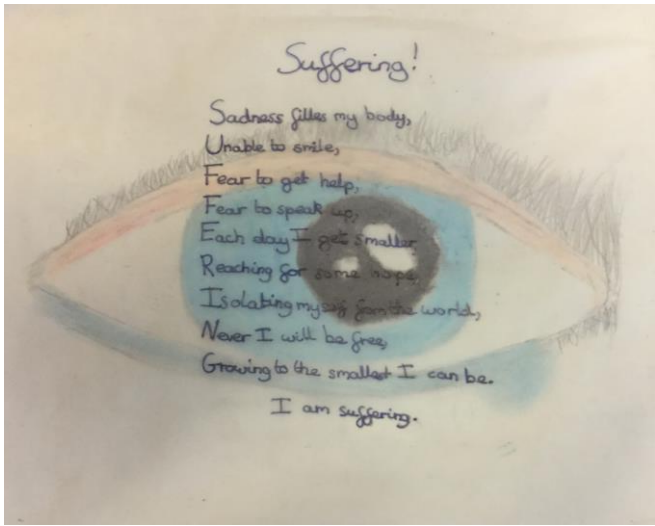 Suffering!
Sadness filles my body,
Unable to smile,
Fear to get help,
Fear to speak up,
Each day I get smaller,
Reaching for some hope,
Isolating myself from the world,
Never I will be free,
Growing to the smallest I can be.
I am suffering.